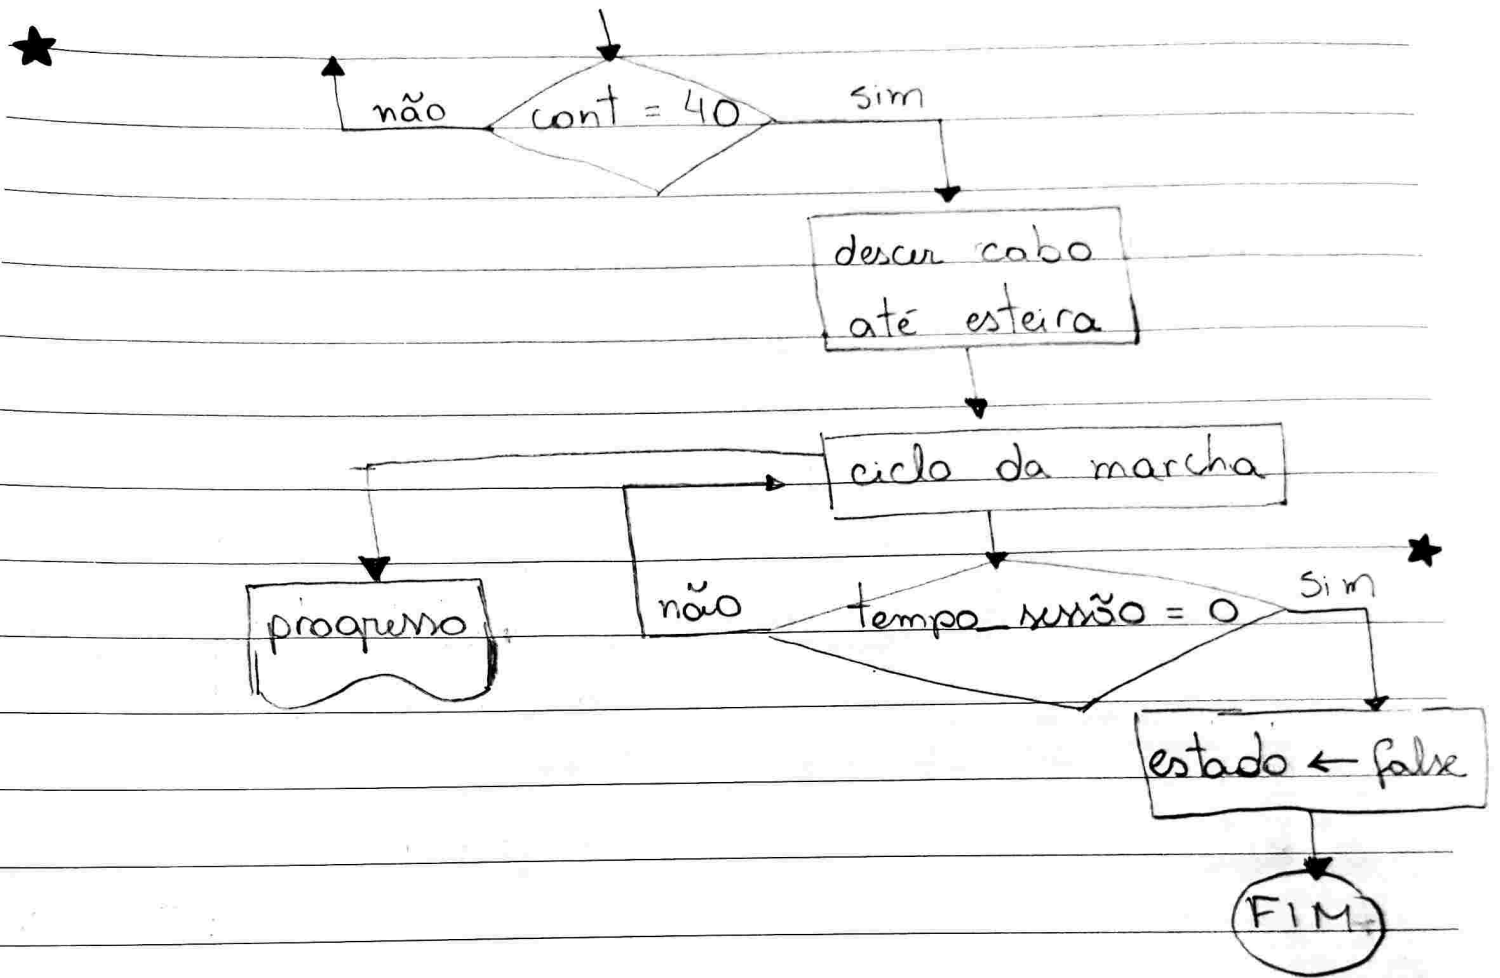 não
cont = 40
sim
descer cabo
até esteira
ciclo da marcha
progresso
não
tempo_sessão = 0
sim
estado ← false
FIM